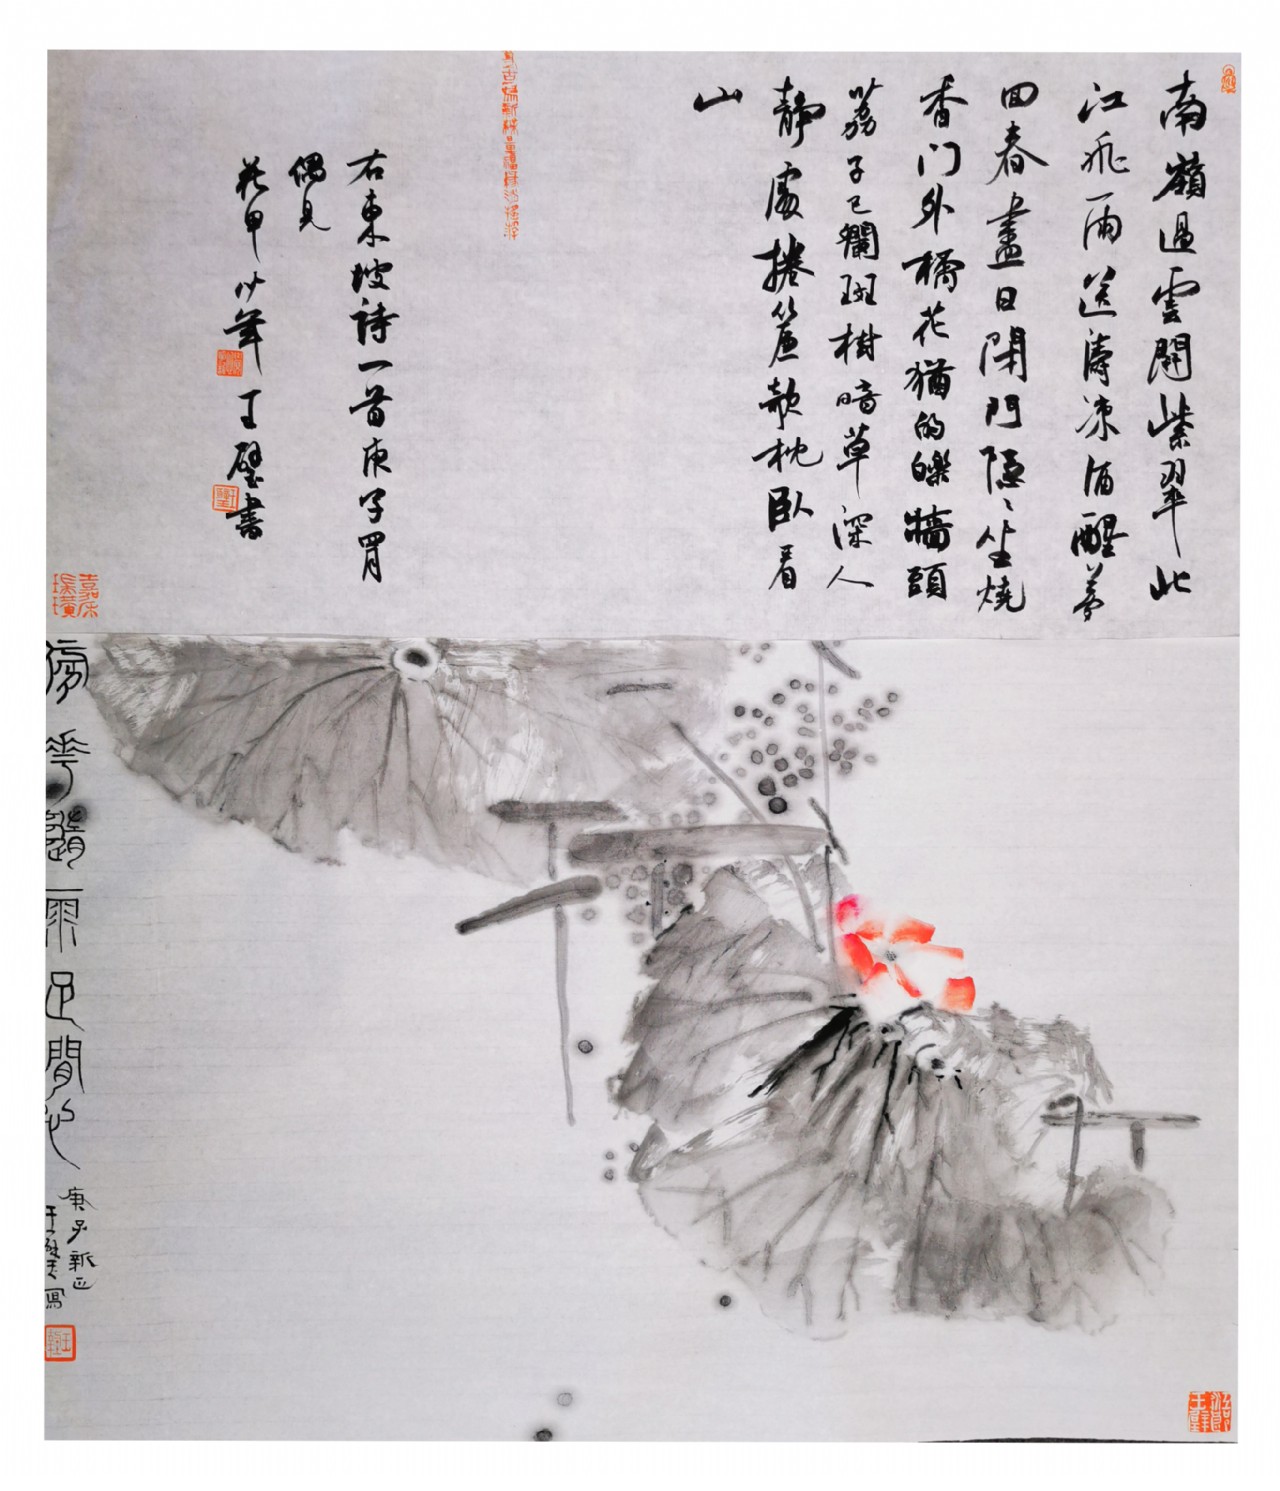 南嶺過雲開紫翠北
江飛雨送淒凉酒醒夢
回春盡日閉門隱〻坐燒
香門外橘花猶的皪牆頭
荔子已斕斑樹暗草深人
靜處捲簾欹枕臥看
山
右東坡詩一首庚子
偶見
花甲少年王璧書
花隨雨足閒
庚子新正
王璧寫